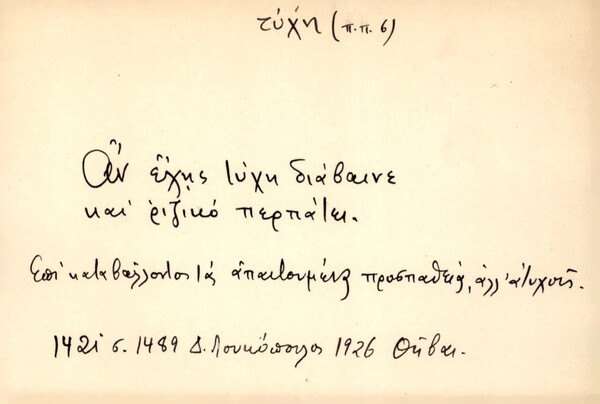 τύχη (π.π. 6)
Ἂν ἔχῃς τύχη διάβαινε
καὶ ριζικό περπάτει.
Ἐπὶ καταβάλλοντος τὰ ἀπαιτουμένη προσπάθεια, ἀλλ' ἀτυχοῦς.
1421 σ. 1489 Δ. Λουκόπουλος 1926 Θῆβαι.